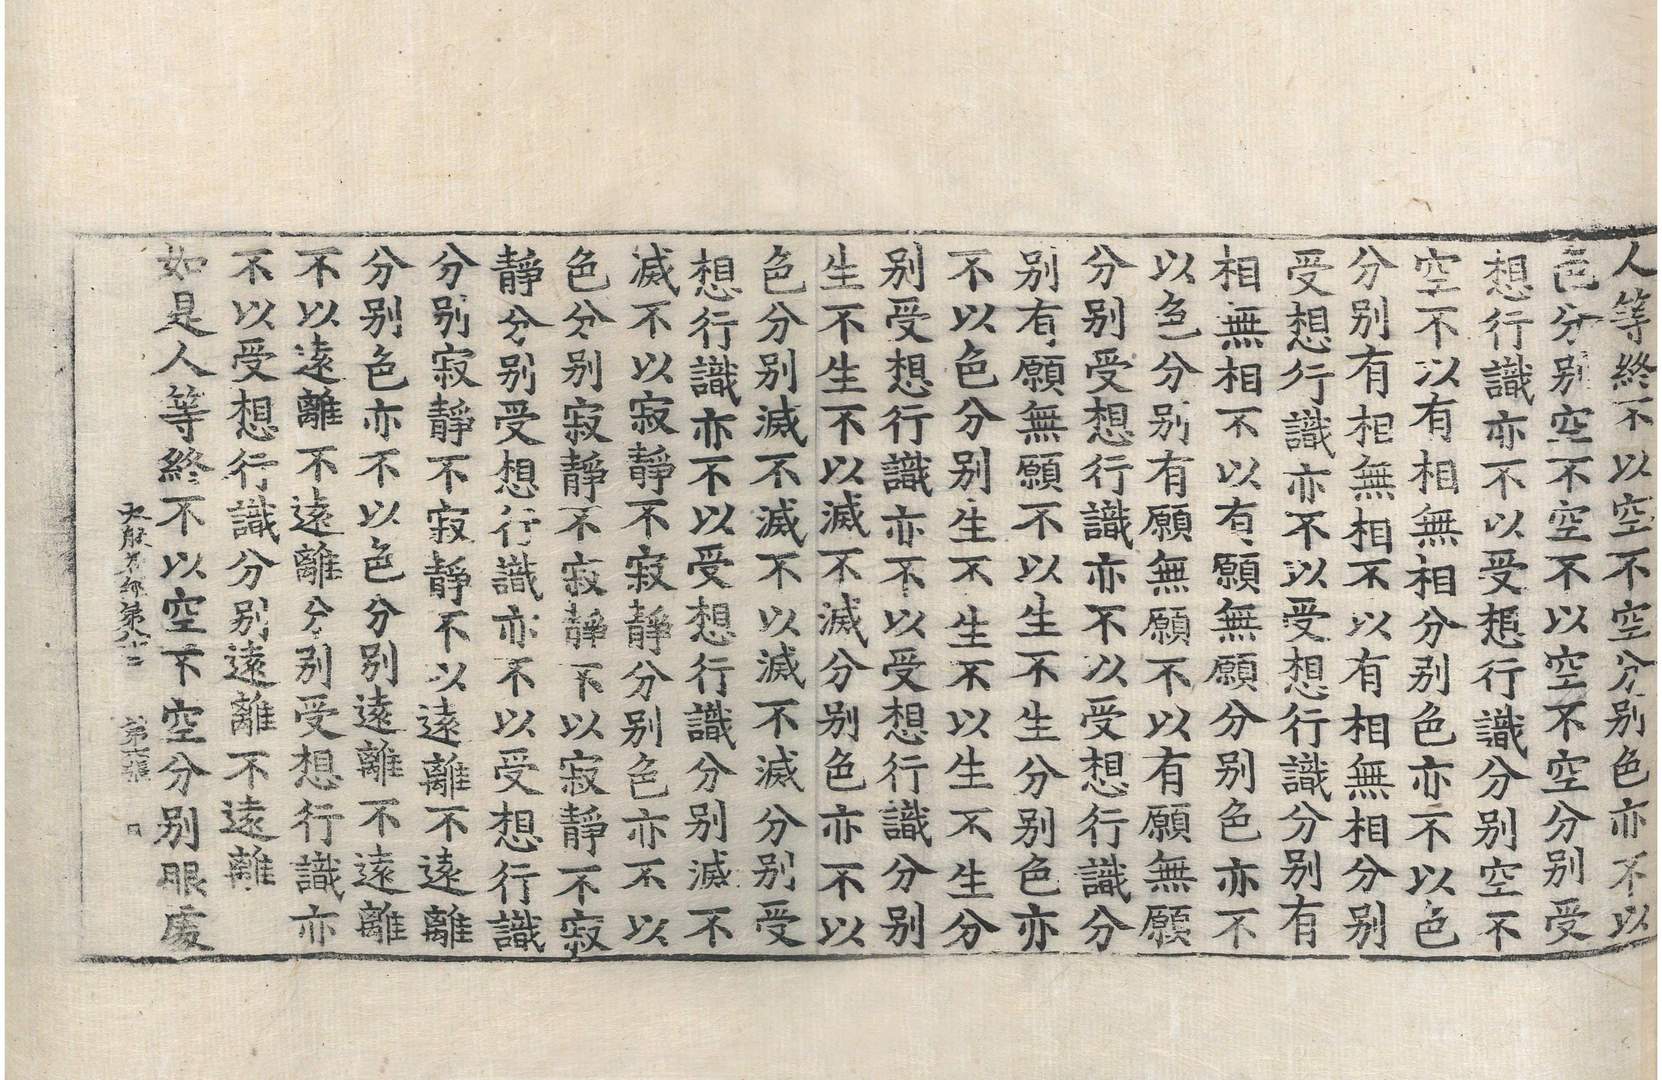 人等終不以空不空分別色亦不以
色分別空不空不以空不空分別受
想行識亦不以受想行識分別空不
空不以有相無相分別色亦不以色
分別有相無相不以有相無相分別
受想行識亦不以受想行識分別有
相無相不以有願無願分別色亦不
以色分別有願無願不以有願無願
分別受想行識亦不以受想行識分
別有願無願不以生不生分別色亦
不以色分別生不生不以生不生分
別受想行識亦不以受想行識分別
生不生不以滅不滅分別色亦不以
色分別滅不滅不以滅不滅分別受
想行識亦不以受想行識分別滅不
滅不以寂靜不寂靜分別色亦不以
色分別寂靜不寂靜不以寂靜不寂
靜分別受想行識亦不以受想行識
分別寂靜不寂靜不以遠離不遠離
分別色亦不以色分別遠離不遠離
不以遠離不遠離分別受想行識亦
不以受想行識分別遠離不遠離
如是人等終不以空不空分別眼處
大般若經第八十二 第六張